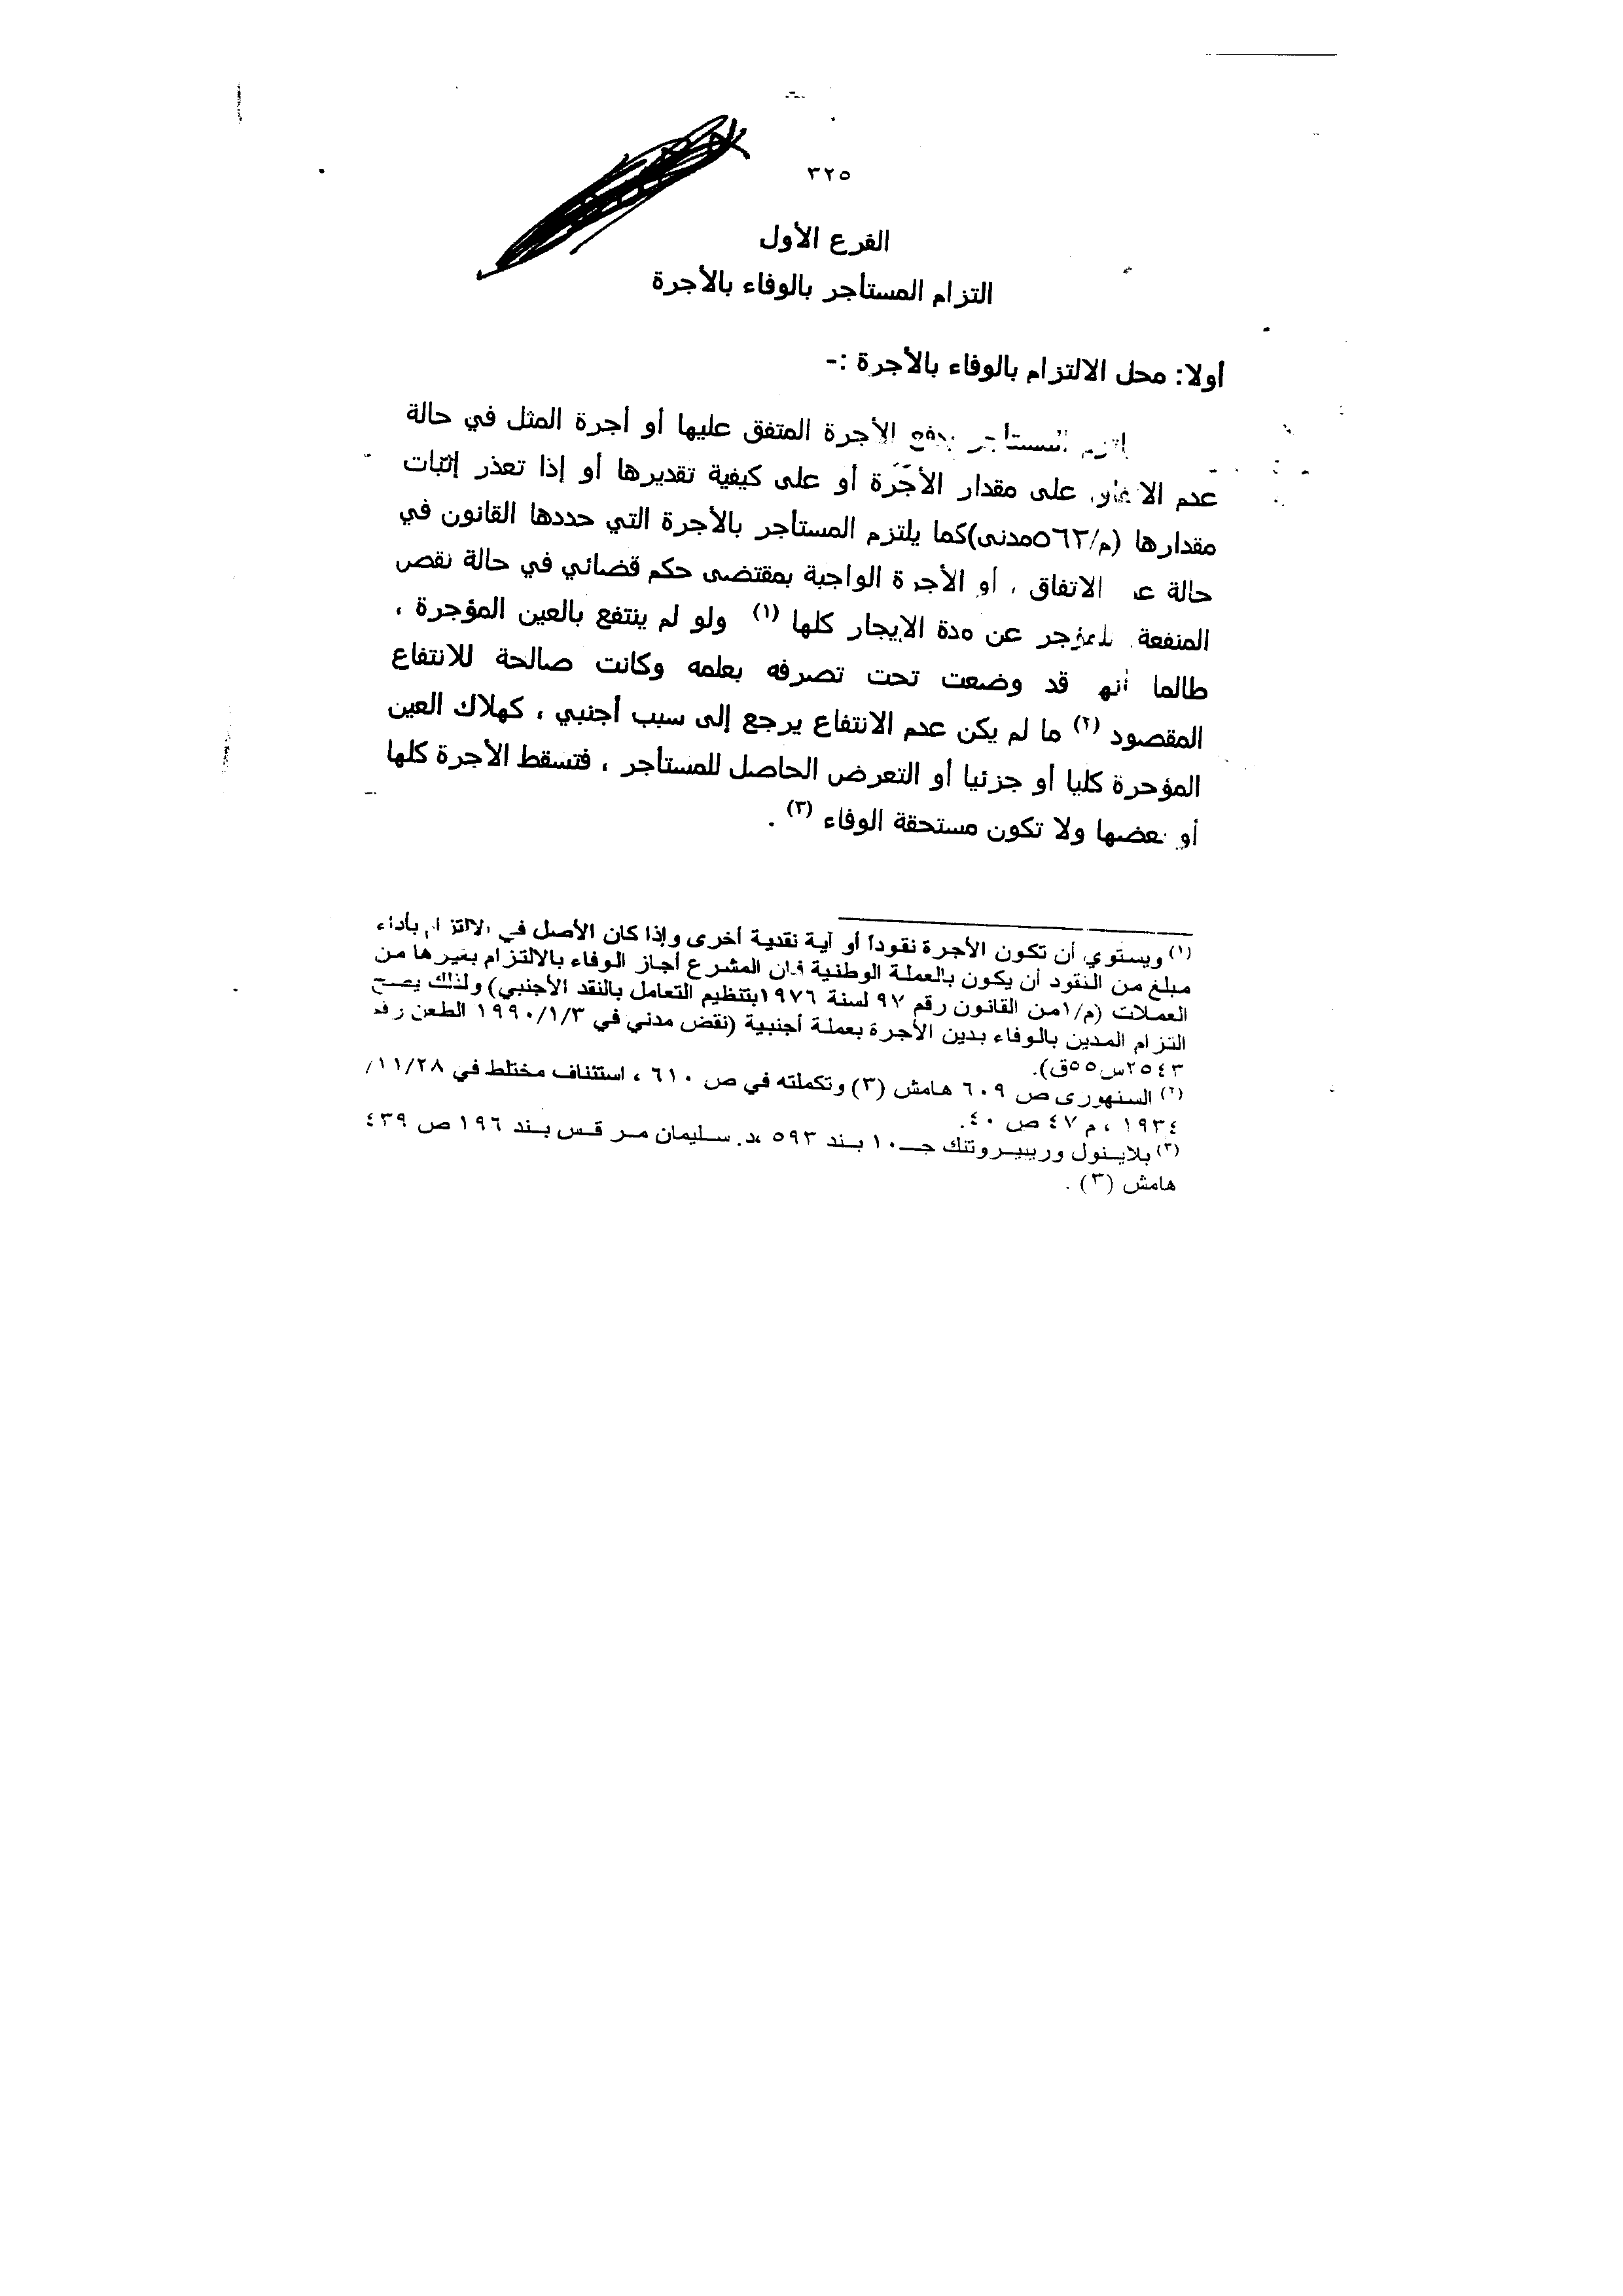 ٣٢٥
الفرع الأول
التزام المستأجر بالوفاء بالأجرة
أولا: محل الالتزام بالوفاء بالأجرة :-
المستأجر بدفع الأجرة المتفق عليها أو أجرة المثل في حالة
عدم الاتفاق على مقدار الأجرة أو على كيفية تقديرها أو إذا تعذر إثبات
مقدارها (م/٥٦٢مدنى)كما يلتزم المستأجر بالأجرة التي حددها القانون في
حالة الاتفاق ، أو الأجرة الواجبة بمقتضى حكم قضائي في حالة نقص
المنفعة للمؤجر عن مدة الإيجار كلها (١) ولو لم ينتفع بالعين المؤجرة ،
طالما أنها قد وضعت تحت تصرفه بعلمه وكانت صالحة للانتفاع
المقصود (٢) ما لم يكن عدم الانتفاع يرجع إلى سبب أجنبي ، كهلاك العين
المؤجرة كليا أو جزئيا أو التعرض الحاصل للمستأجر ، فتسقط الأجرة كلها
أو بعضها ولا تكون مستحقة الوفاء (٣) .
(١) ويستوي أن تكون الأجرة نقوداً أو آية نقدية أخرى وإذا كان الأصل في الالتزام بأداء
مبلغ من النقود أن يكون بالعملة الوطنية فإن المشرع أجاز الوفاء بالالتزام بغيرها من
العملات (م/١من القانون رقم ٩٧ لسنة ١٩٧٦بتنظيم التعامل بالنقد الأجنبي) ولذلك يصح
التزام المدين بالوفاء بدين الأجرة بعملة أجنبية (نقض مدني في ١٩٩٠/١/٣ الطعن رقم
٢٥٤٣س٥٥ق).
(٢) السنهورى ص ٦٠٩ هامش (٣) وتكملته في ص ٦١٠ ، استئناف مختلط في ١١/٢٨/
١٩٣٤ ، م ٤٧ ص ٤٠.
(٣) بلاينول وريبيروتنك جـ١٠ بند ٥٩٣ ،د. سليمان مرقس بند ١٩٦ ص ٤٣٩
هامش (٣) .